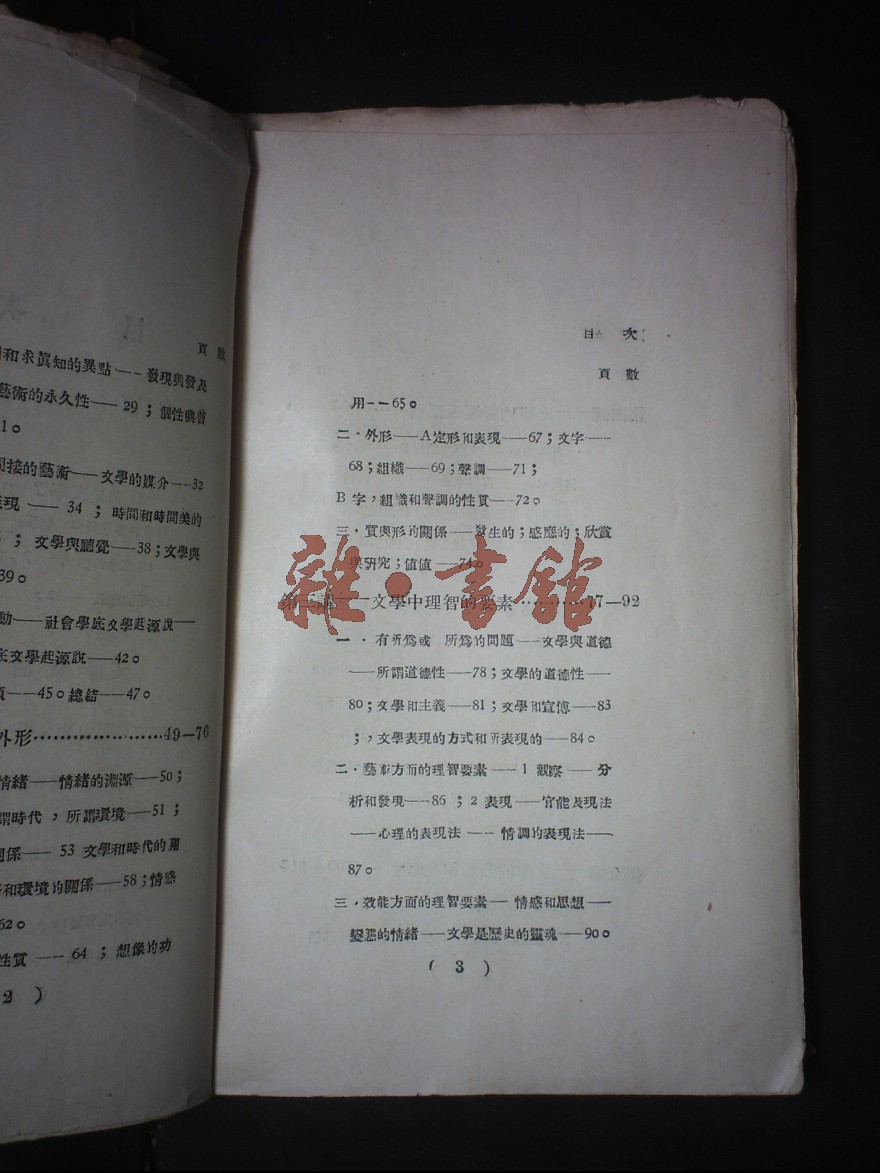 目 次
頁 數
和求眞知的異點——發現與發表
藝術的永久性——29；個性與普
1。
接的藝術——文學的媒介——32
現——34；時間和時間美的
；文學與聽覺——38；文學與
39。
動——社會學底文學起源說——
底文學起源說——42。
——45。總結——47。
外形…………………49—76
情緒——情緒的淵源——50；
謂時代，所謂環境——51；
關係——53 文學和時代的關
和環境的關係——58；情感
62。
性質——64；想像的功
2 )
目 次
頁 數
用——65。
二·外形——A定形和表現——67；文字——
68；組織——69；聲調——71；
B字，組織和聲調的性質——72。
三·質與形的關係——發生的；感應的；欣賞
與研究；値値——74。
第三講——文學中理智的要素…………77—92
一·有所爲或 所爲的問題——文學與道德
——所謂道德性——78；文學的道德性——
80；文學和主義——81；文學和宣傳——83
；，文學表現的方式和所表現的——84。
二·藝術方面的理智要素——1 觀察——分
析和發現——86；2 表現——官能表現法
——心理的表現法——情調的表現法——
87。
三·效能方面的理智要素——情感和思想——
變態的情緒——文學是歷史的靈魂——90。
( 3 )
雜·書館